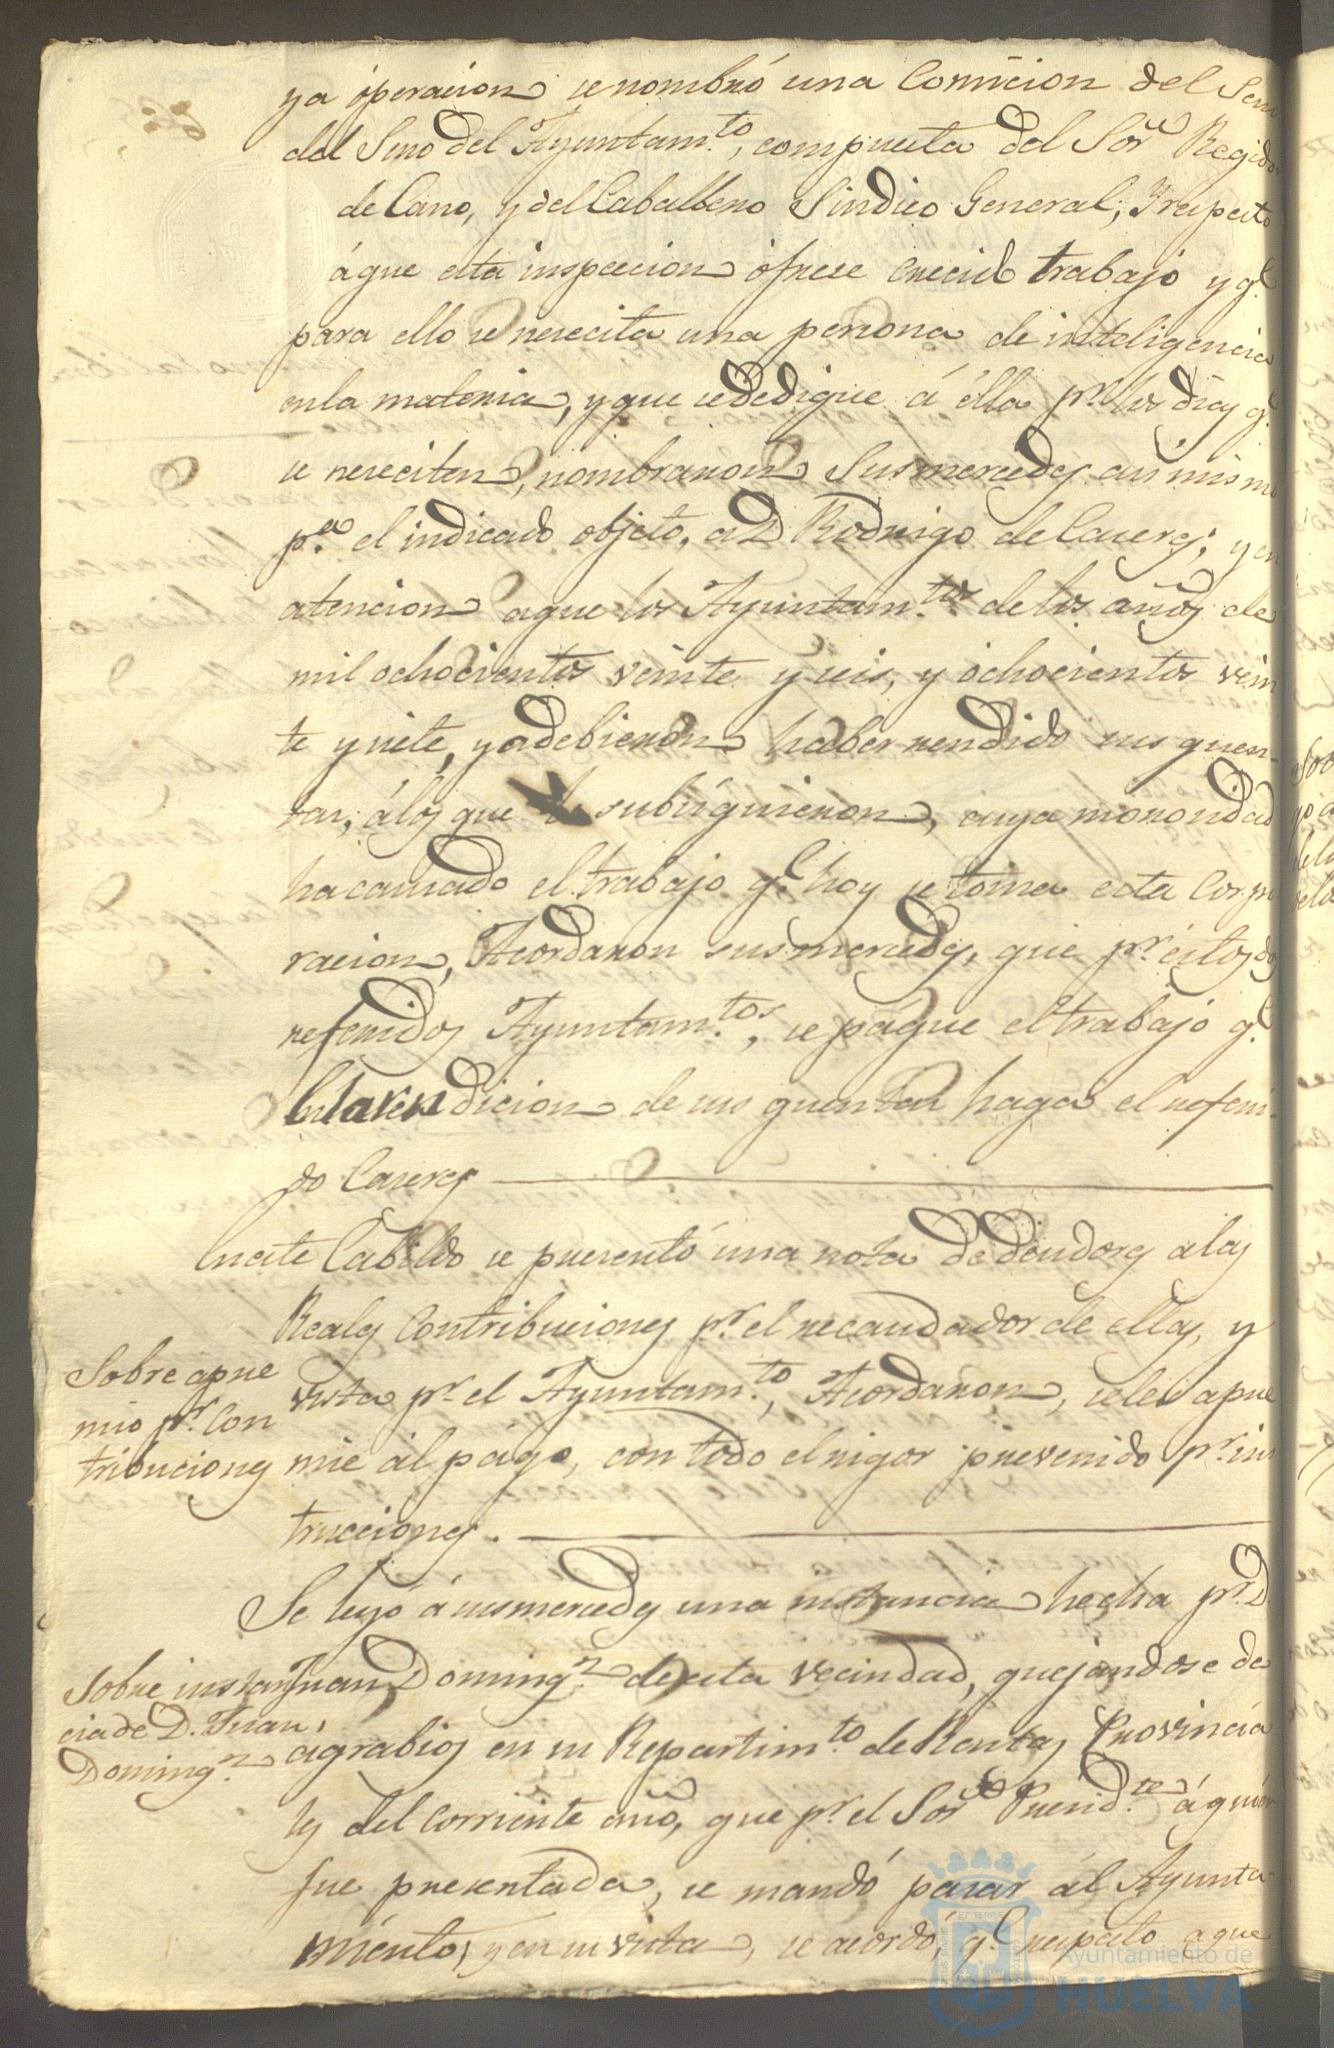 ya óperacion se nombró una Comicion del Seno
del Seno del Ayuntam.to, compuesta del Sor. Regidor
de Cano, y del Caballero Sindico General; Y respecto
áque esta inspeccion ófrece crecido trabajo y q.e
para ello se nececita una persona de inteligencia
en la materia, y que se dedique á élla p.r los dias q.e
se nececiten, nombraron Susmercedes asímismo
p.a el indicado objeto, a D Rodrigo de Caceres; y en
atencion aque los Ayuntam.tos de los años de
mil ochocientos veinte y seis, y ochocientos vein
te y siete, ya debieron haber rendido sus quen-
tas, álos que subsiguieron, cuya morosidad
ha causado el trabajo q.e hoy se toma esta Corpo
racion, Acordaron susmercedes, que p.r éstos dos
referidos Ayuntam.tos, se págue el trabajo q.e
en la rendicion de sus quentas haga el referi-
do Caceres
En este Cabildo se presentó una nota de deudores alas
Reales Contribuciones p.r el recaudador de ellas, y
Sobre apre
mio p.r Con
tribuciones
vista p.r el Ayuntam.to, Acordaron, seles apre
mie al págo, con todo el rigor prevenido p.r ins
trucciones.
Se leyó á susmercedes una instancia hecha p.r D
Sobre instan
cia de D. Juan
Doming.z
Juan Doming.z de esta vecindad, quejandose de
agrabios en su Repartim.to de Rentas Provincia
les del corriente año, que p.r el Sor. Presid.te á quien
fue presentada, se mandó pasar ál Ayunta-
miento, y en su vista, se acordó, q.e respecto aque
Ayuntamiento de
HUELVA